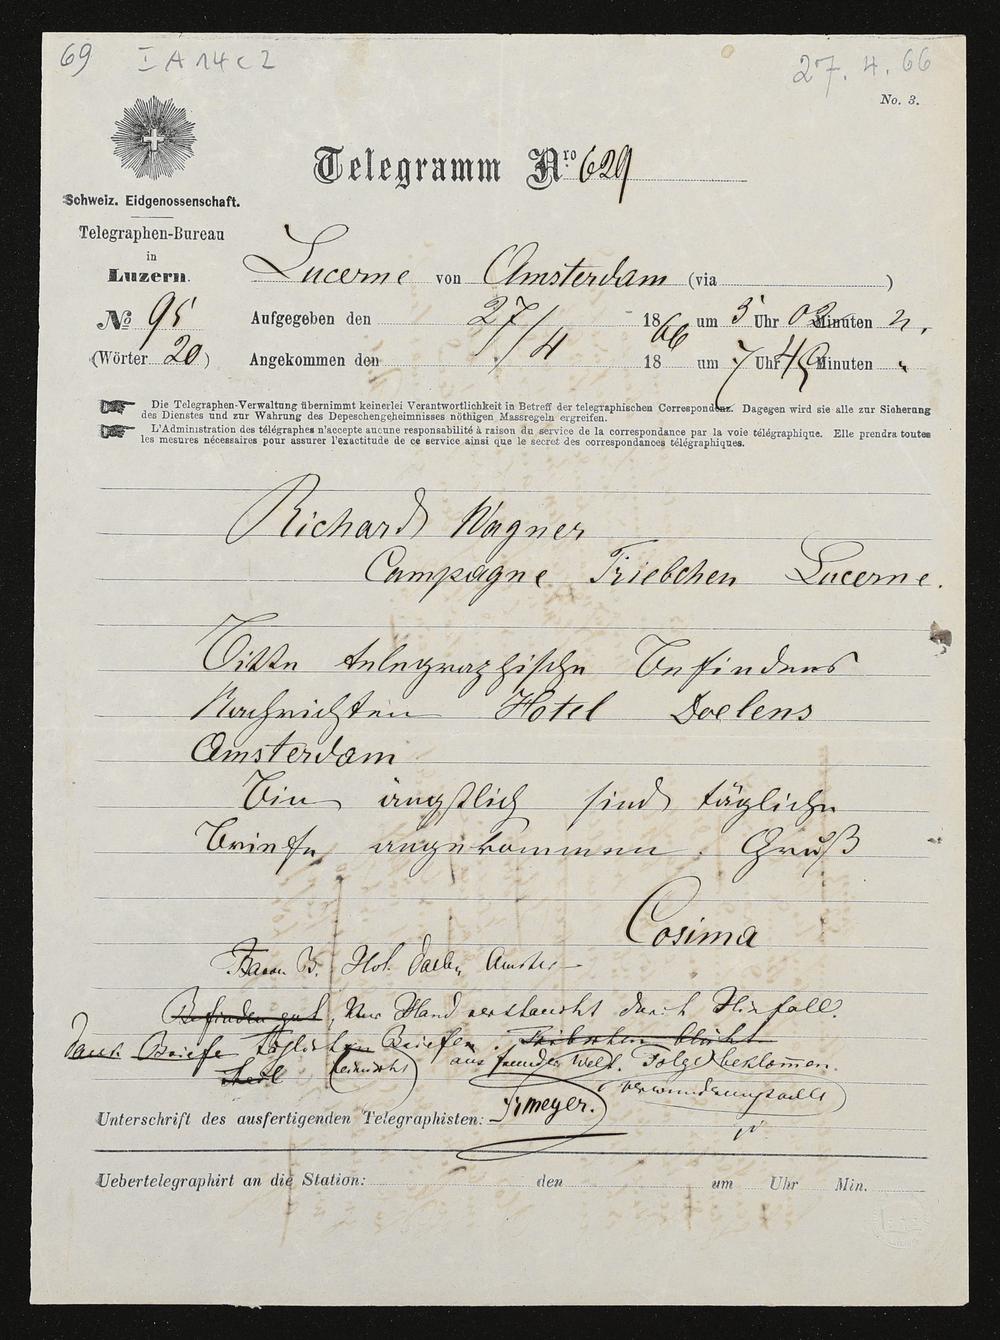 69 I A 14 c 2 27. 4. 66
No. 3.
Telegramm Nro 629
Schweiz. Eidgenossenschaft.
Telegraphen-Bureau
in
Luzern.
Lucerne von Amsterdam (via )
No 95 Aufgegeben den 27/4 1866 um 5 Uhr 02 Minuten n.
(Wörter 20) Angekommen den 18 um 7 Uhr 45 Minuten "
Die Telegraphen-Verwaltung übernimmt keinerlei Verantwortlichkeit in Betreff der telegraphischen Correspondenz. Dagegen wird sie alle zur Sicherung
des Dienstes und zur Wahrung des Depeschengeheimnisses nöthigen Massregeln ergreifen.
L'Administration des télégraphes n'accepte aucune responsabilité à raison du service de la correspondance par la voie télégraphique. Elle prendra toutes
les mesures nécessaires pour assurer l'exactitude de ce service ainsi que le secret des correspondances télégraphiques.
Richard Wagner
Campagne Triebchen Lucerne.
Bitte telegraphische Befindens
Nachrichten Hotel Doelens
Amsterdam
Bin ängstlich sind tägliche
Briefe angekommen. Gruß
Cosima
B. Hot. Amster
Befinden gut, Nur Hand verstaucht durch
Dank Briefe täglichen Briefen.
aus fremder Welt. Folge beklommen.
Unterschrift des ausfertigenden Telegraphisten: meyer.
Uebertelegraphirt an die Station: den um Uhr Min.